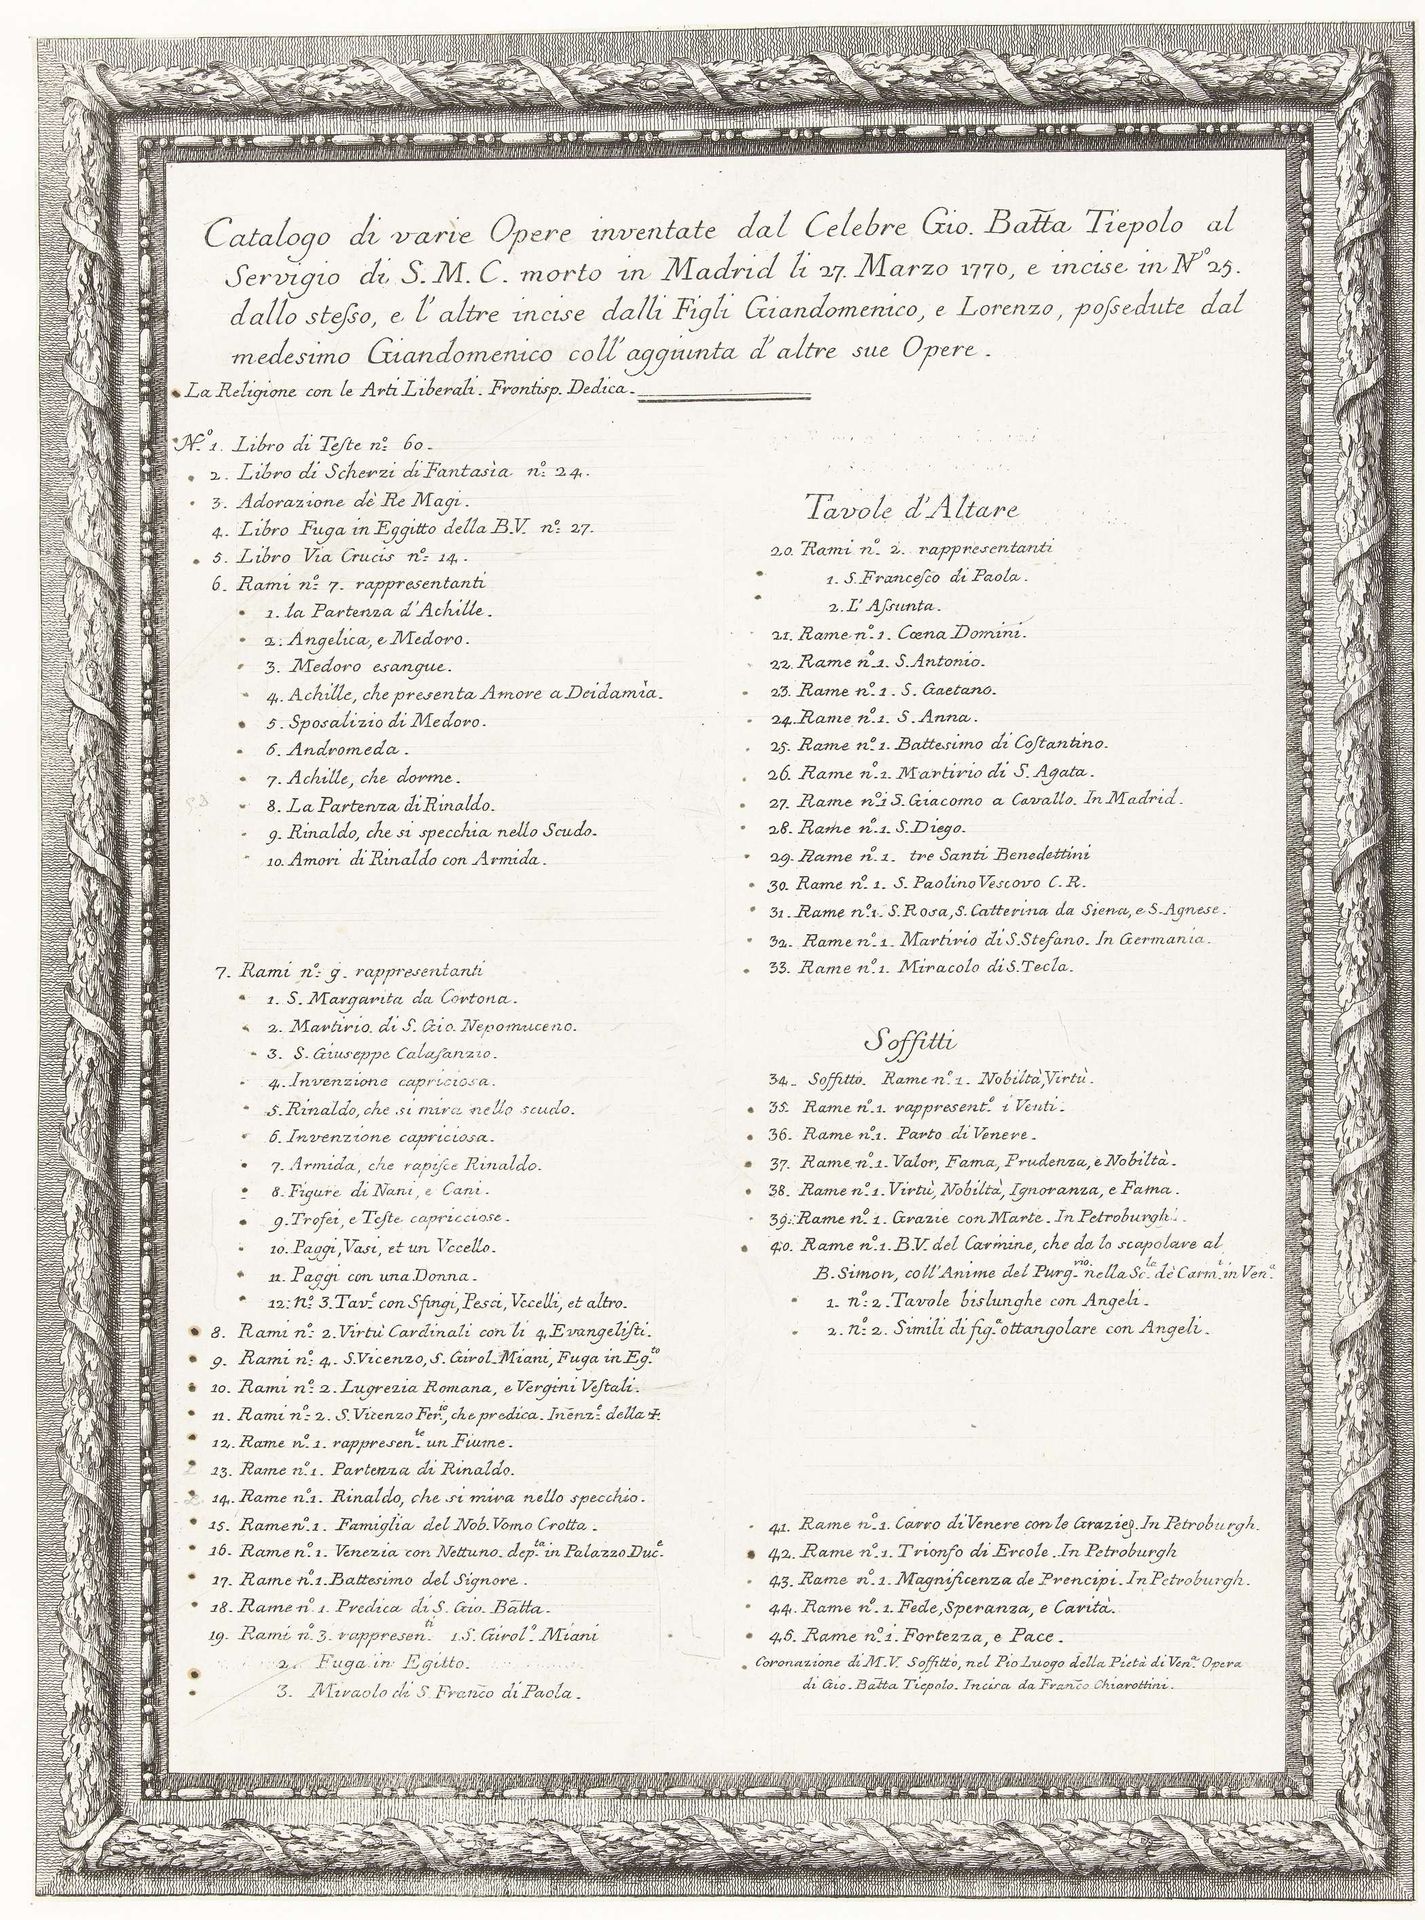 Catalogo di varie Opere inventate dal Celebre Gio. Batt̄a Tiepolo al
Servigio di S. M. C. morto in Madrid li 27. Marzo 1770, e incise in Nº 25.
dallo steſso, e l'altre incise dalli Figli Giandomenico, e Lorenzo, poſsedute dal
medesimo Giandomenico coll'aggiunta d'altre sue Opere.
La Religione con le Arti Liberali. Frontisp. Dedica.
Nº. 1. Libro di Teſte nº. 60.
2. Libro di Scherzi di Fantasìa nº. 24.
3. Adorazione dè Re Magi.
4. Libro Fuga in Eggitto della B.V. nº. 27.
5. Libro Via Crucis nº. 14.
6. Rami nº. 7. rappresentanti
1. la Partenza d'Achille.
2. Angelica, e Medoro.
3. Medoro esangue.
4. Achille, che presenta Amore a Deidamìa.
5. Sposalizio di Medoro.
6. Andromeda.
7. Achille, che dorme.
8. La Partenza di Rinaldo.
9. Rinaldo, che si specchia nello Scudo.
10. Amori di Rinaldo con Armida.
7. Rami nº. 9. rappresentanti
1. S. Margarita da Cortona.
2. Martirio di S. Gio. Nepomuceno.
3. S. Giuseppe Calaſanzio.
4. Invenzione capriciosa.
5. Rinaldo, che si mira nello scudo.
6. Invenzione capriciosa.
7. Armida, che rapiſce Rinaldo.
8. Figure di Nani, e Cani.
9. Trofei, e Teſte capricciose.
10. Paggi, Vasi, et un Vccello.
11. Paggi con una Donna.
12. nº. 3. Tav.ᵉ con Sfingi, Pesci, Vccelli, et altro.
8. Rami nº. 2. Virtù Cardinali con li 4. Evangeliſti.
9. Rami nº. 4. S. Vicenzo, S. Girol. Miani, Fuga in Eg.ᵗᵒ
10. Rami nº. 2. Lugrezia Romana, e Vergini Veſtali.
11. Rami nº. 2. S. Vicenzo Fer.ᵗᵒ, che predica. Inēnz.ᵉ della ✝.
12. Rame nº. 1. rappresen.ᵗᵉ un Fiume.
13. Rame nº. 1. Partenza di Rinaldo.
14. Rame nº. 1. Rinaldo, che si mira nello specchio.
15. Rame nº. 1. Famiglia del Nob. Vomo Crotta.
16. Rame nº. 1. Venezia con Nettuno. dep.ᵗᵃ in Palazzo Duc.ᵉ
17. Rame nº. 1. Battesimo del Signore.
18. Rame nº. 1. Predica di S. Gio. Batt̄a.
19. Rami nº. 3. rappresen.ᵗⁱ 1. S. Girol.º Miani
2. Fuga in Egitto.
3. Miraolo di S. Fran̄co di Paola.
Tavole d'Altare
20. Rami nº. 2. rappresentanti
1. S. Franceſco di Paola.
2. L'Aſsunta.
21. Rame nº. 1. Cœna Domini.
22. Rame nº. 1. S. Antonio.
23. Rame nº. 1. S. Gaetano.
24. Rame nº. 1. S. Anna.
25. Rame nº. 1. Battesimo di Coſtantino.
26. Rame nº. 1. Martirio di S. Agata.
27. Rame nº. 1 S. Giacomo a Cavallo. In Madrid.
28. Rame nº. 1. S. Diego.
29. Rame nº. 1. tre Santi Benedettini
30. Rame nº. 1. S. Paolino Vescovo C. R.
31. Rame nº. 1. S. Rosa, S. Catterina da Siena, e S. Agnese.
32. Rame nº. 1. Martirio di S. Stefano. In Germania.
33. Rame nº. 1. Miracolo di S. Tecla.
Soffitti
34. Soffitto. Rame nº. 1. Nobiltà, Virtù.
35. Rame nº. 1. rappresent.º i Venti.
36. Rame nº. 1. Parto di Venere.
37. Rame nº. 1. Valor, Fama, Prudenza, e Nobiltà.
38. Rame nº. 1. Virtù, Nobiltà, Ignoranza, e Fama.
39. Rame nº. 1. Grazie con Marte. In Petroburgh.
40. Rame nº. 1. B.V. del Carmine, che da lo scapolare al
B. Simon, coll'Anime del Purg.ʳⁱᵒ nella Sc.ˡᵃ dè Carm.ⁱ in Ven.ª
1. nº. 2. Tavole bislunghe con Angeli.
2. nº. 2. Simili di fig.ª ottangolare con Angeli.
41. Rame nº. 1. Carro di Venere con le Grazie. In Petroburgh.
42. Rame nº. 1. Trionfo di Ercole. In Petroburgh
43. Rame nº. 1. Magnificenza de Prencipi. In Petroburgh.
44. Rame nº. 1. Fede, Speranza, e Carità.
45. Rame nº. 1. Fortezza, e Pace.
Coronazione di M.V. Soffitto, nel Pio Luogo della Pietà di Ven.ª Opera
di Gio. Batt̄a Tiepolo. Incisa da Fran̄co Chiarottini.